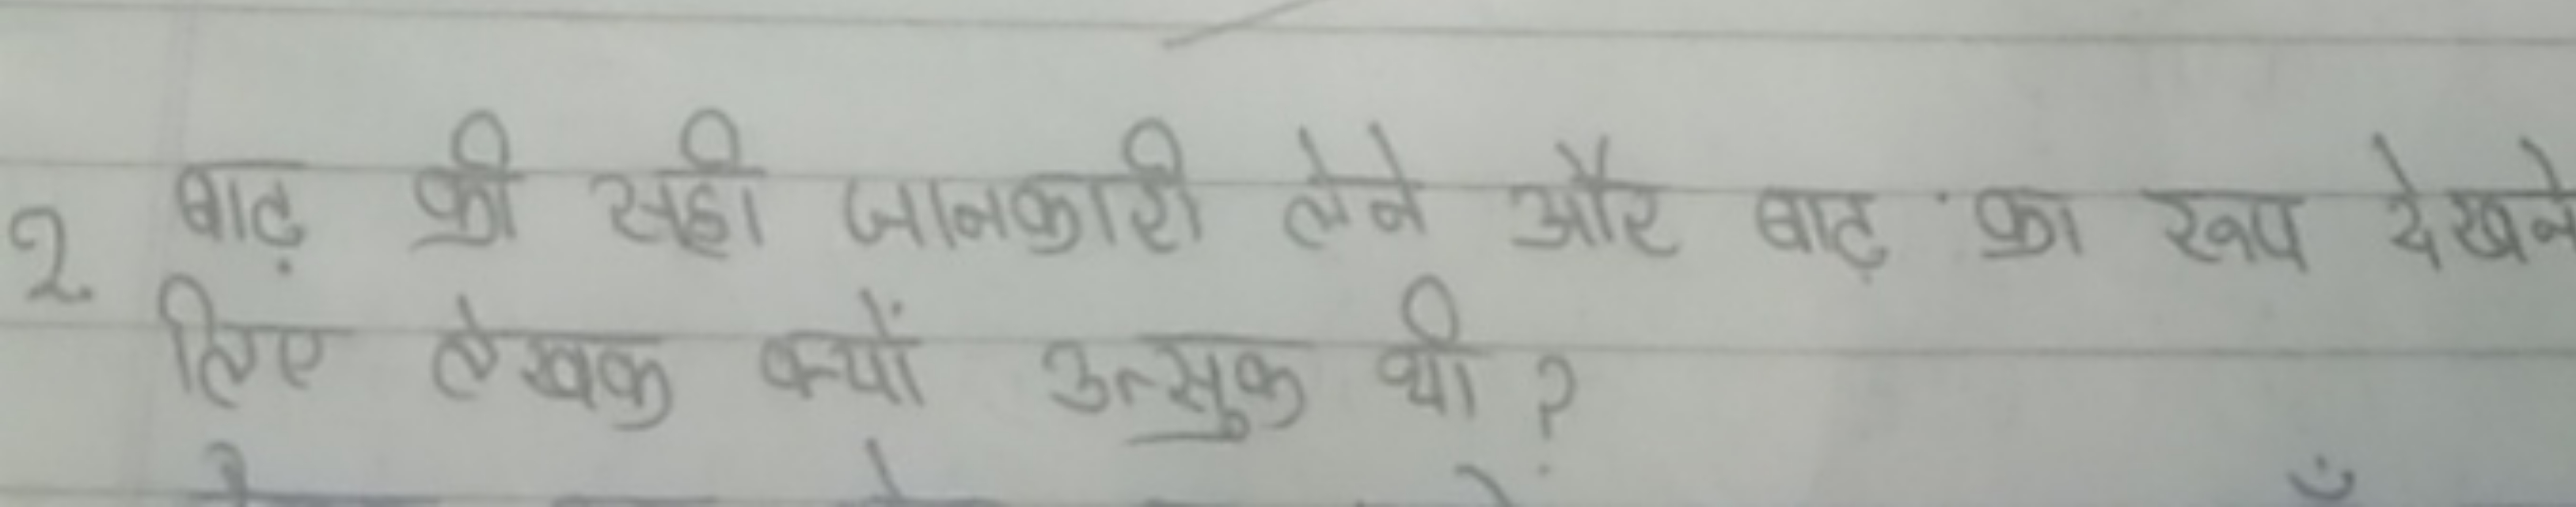 2. बाढ़ की सही जानकारी लेने और बाढ़ का रूप देखने
लिए लेखक क्यों उत्सुक थी ?